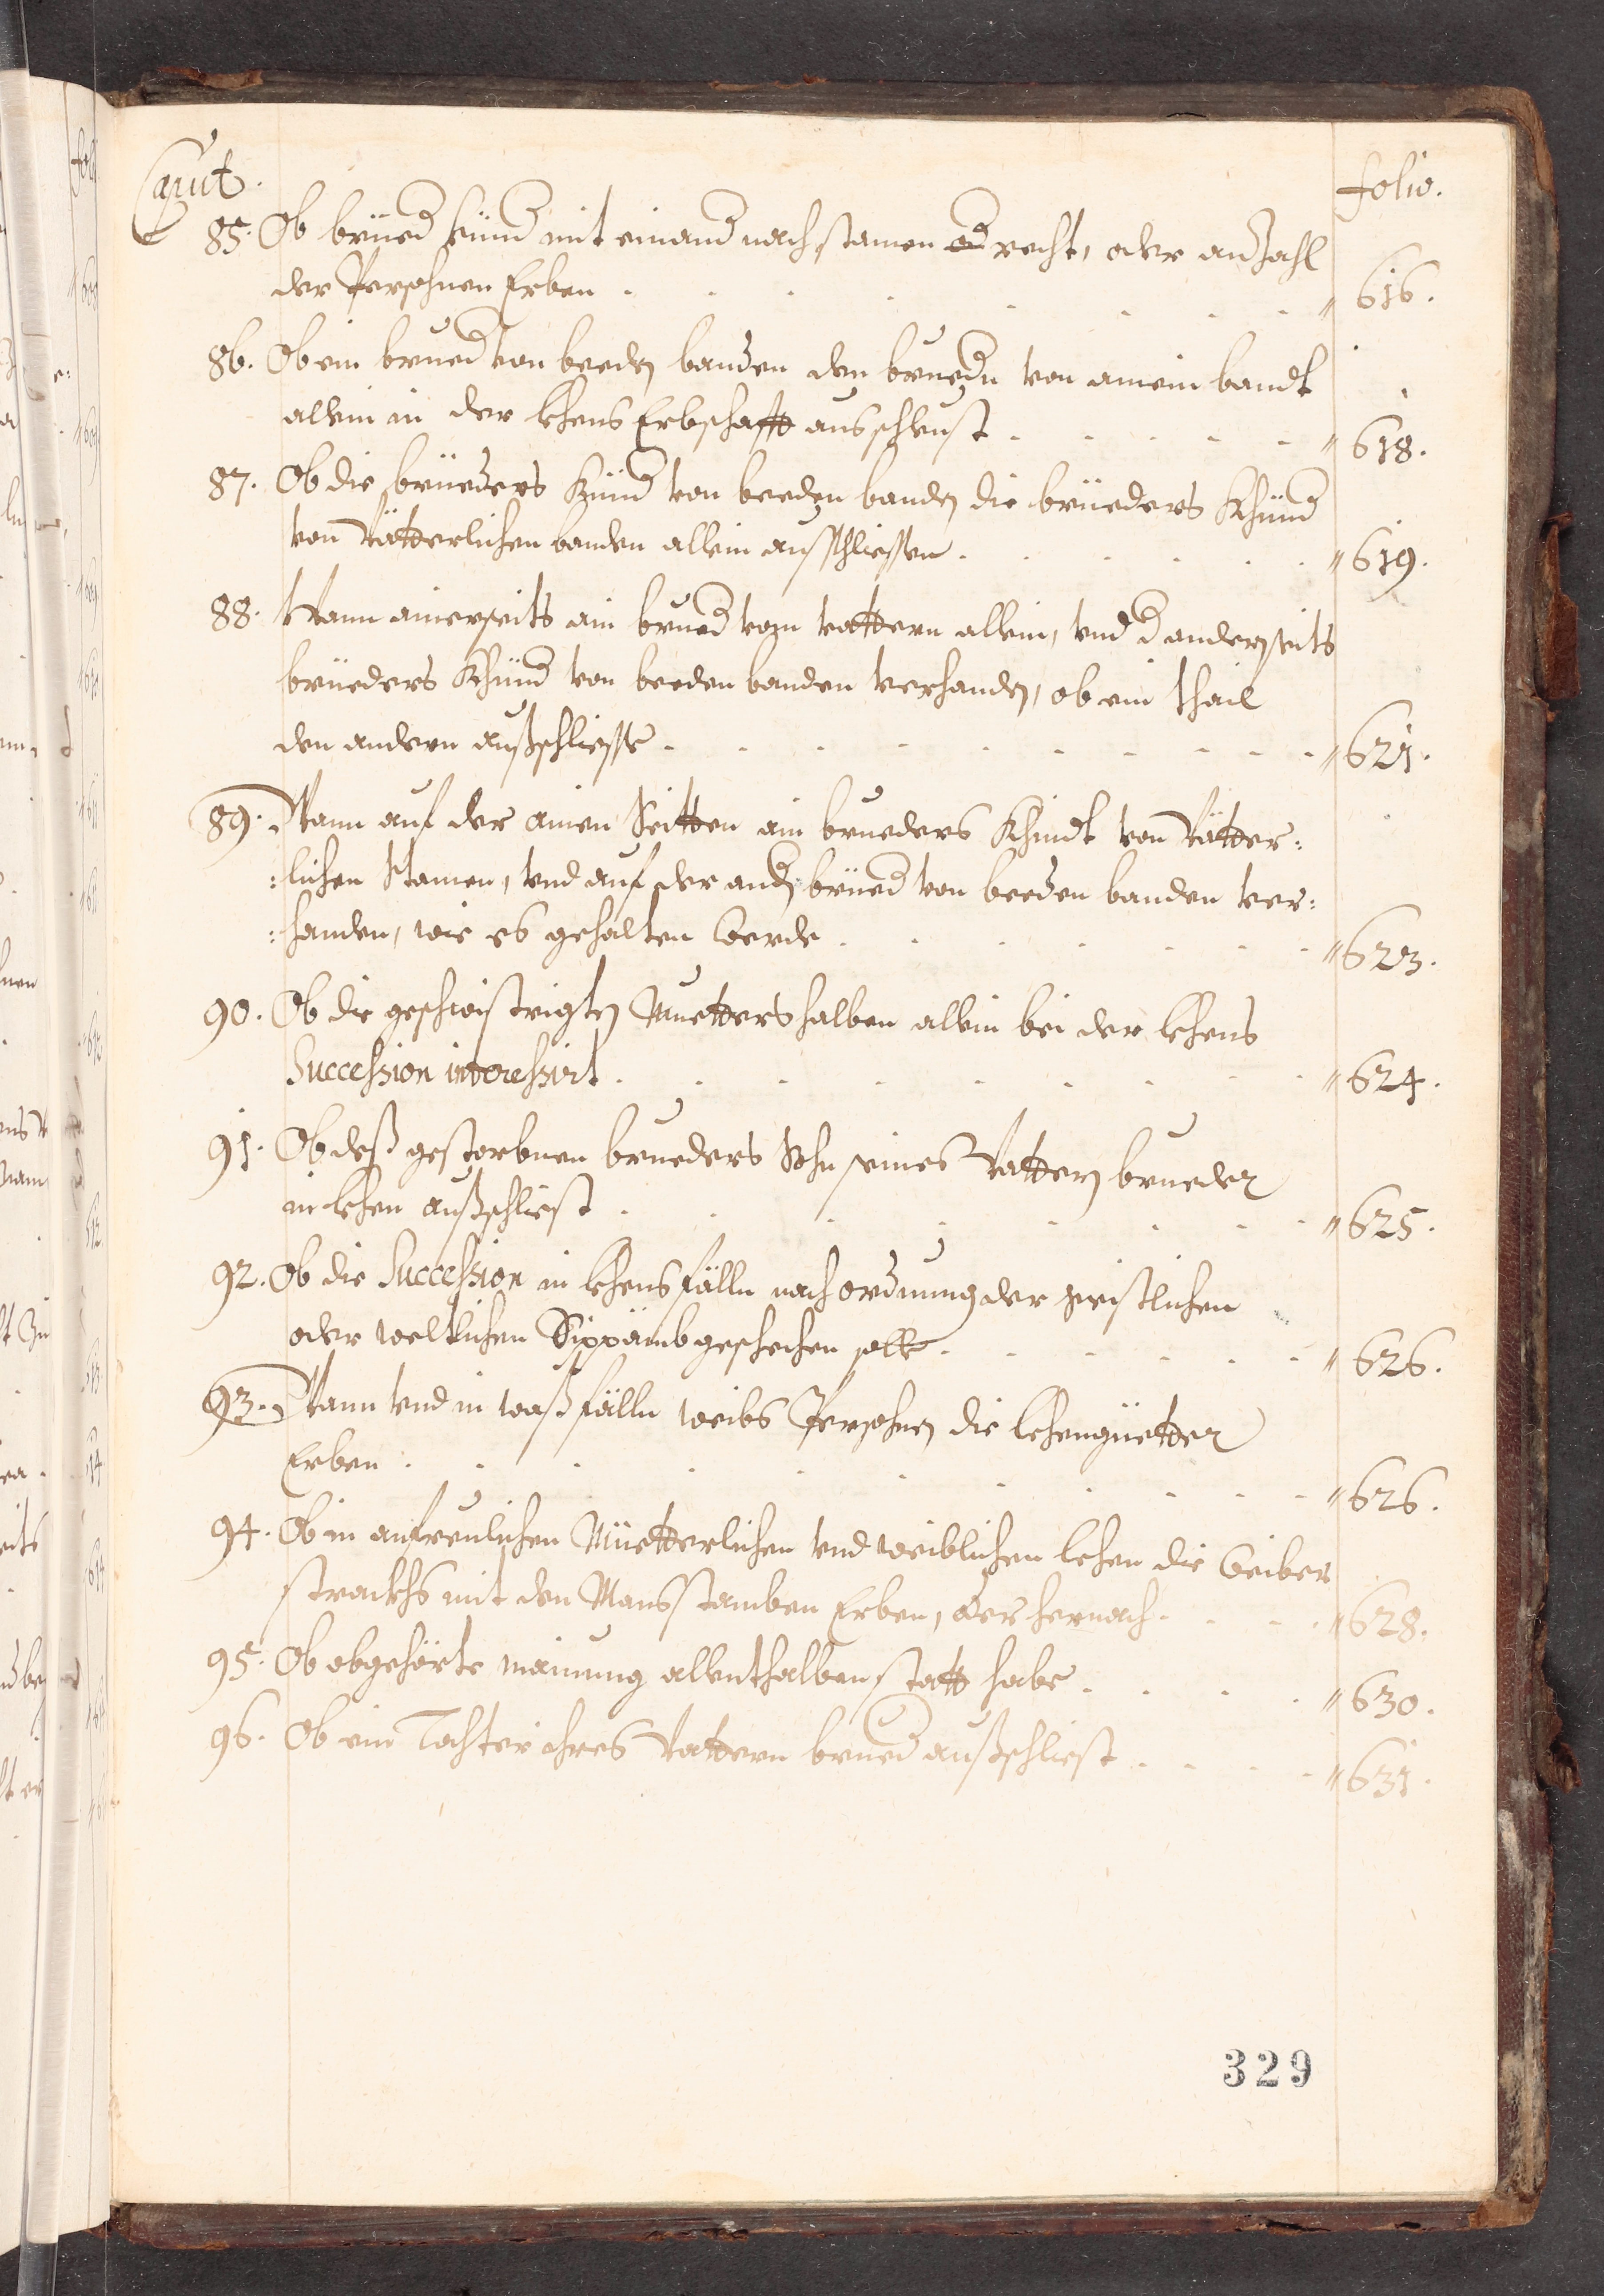 Caput. folio.
85. Ob brüed künd mit einand nach stamen recht, oder anzahl
der Persohnen Erben . . . . . . . " 616.
86. Ob ein brued von beeden banden den bruedn von ainem bandt
allein in der lehens Erbschafft ausschleust . . . . . " 618.
87. Ob die brüeders Künd von beeden banden die brüeders Khünd
von Vätterlichen banden allein ausschliessen . . . . . " 619.
88. Wann ainerseits ain brued vom vattern allein, vnd d anderseits
brüeders Khünd von beeden banden verhanden, ob ein thail
den andern außschliesse . . . . . . . . . " 621.
89. Wann auf der ainen Seitten ain brueders Khindt von Vätter:
:lichen Stamen, vnd auf der andn brüed von beeden banden ver:
:handen, wie es gehalten werde . . . . . . . " 623.
90. Ob die geschwistrigten Muetters halben allein bei der lehens
Succession interessirt . . . . . . . . " 624.
91. Ob deß gestorbnen brueders Sohn seines Vattern brueder
in lehen außschliest . . . . . . . . " 625.
92. Ob die Succession in lehens fälln nach ordnung der geistlichen
oder weltlichen Sippämb geschechen solle . . . . . " 626.
93. Wann vnd in waß fälln weibs Persohnen die lehengüetter
Erben . . . . . . . . . . " 626.
94. Ob in anfrenlichen Müetterlichen vnd weiblichen lehen die weiber
strackhs mit den Mansstamben Erben, oder hernach . . . " 628.
95. Ob obgehörte mainung allenthalben statt habe . . . . " 630.
96. Ob ein Tochter ihres Vattern brued außschliest . . . . " 631.
329